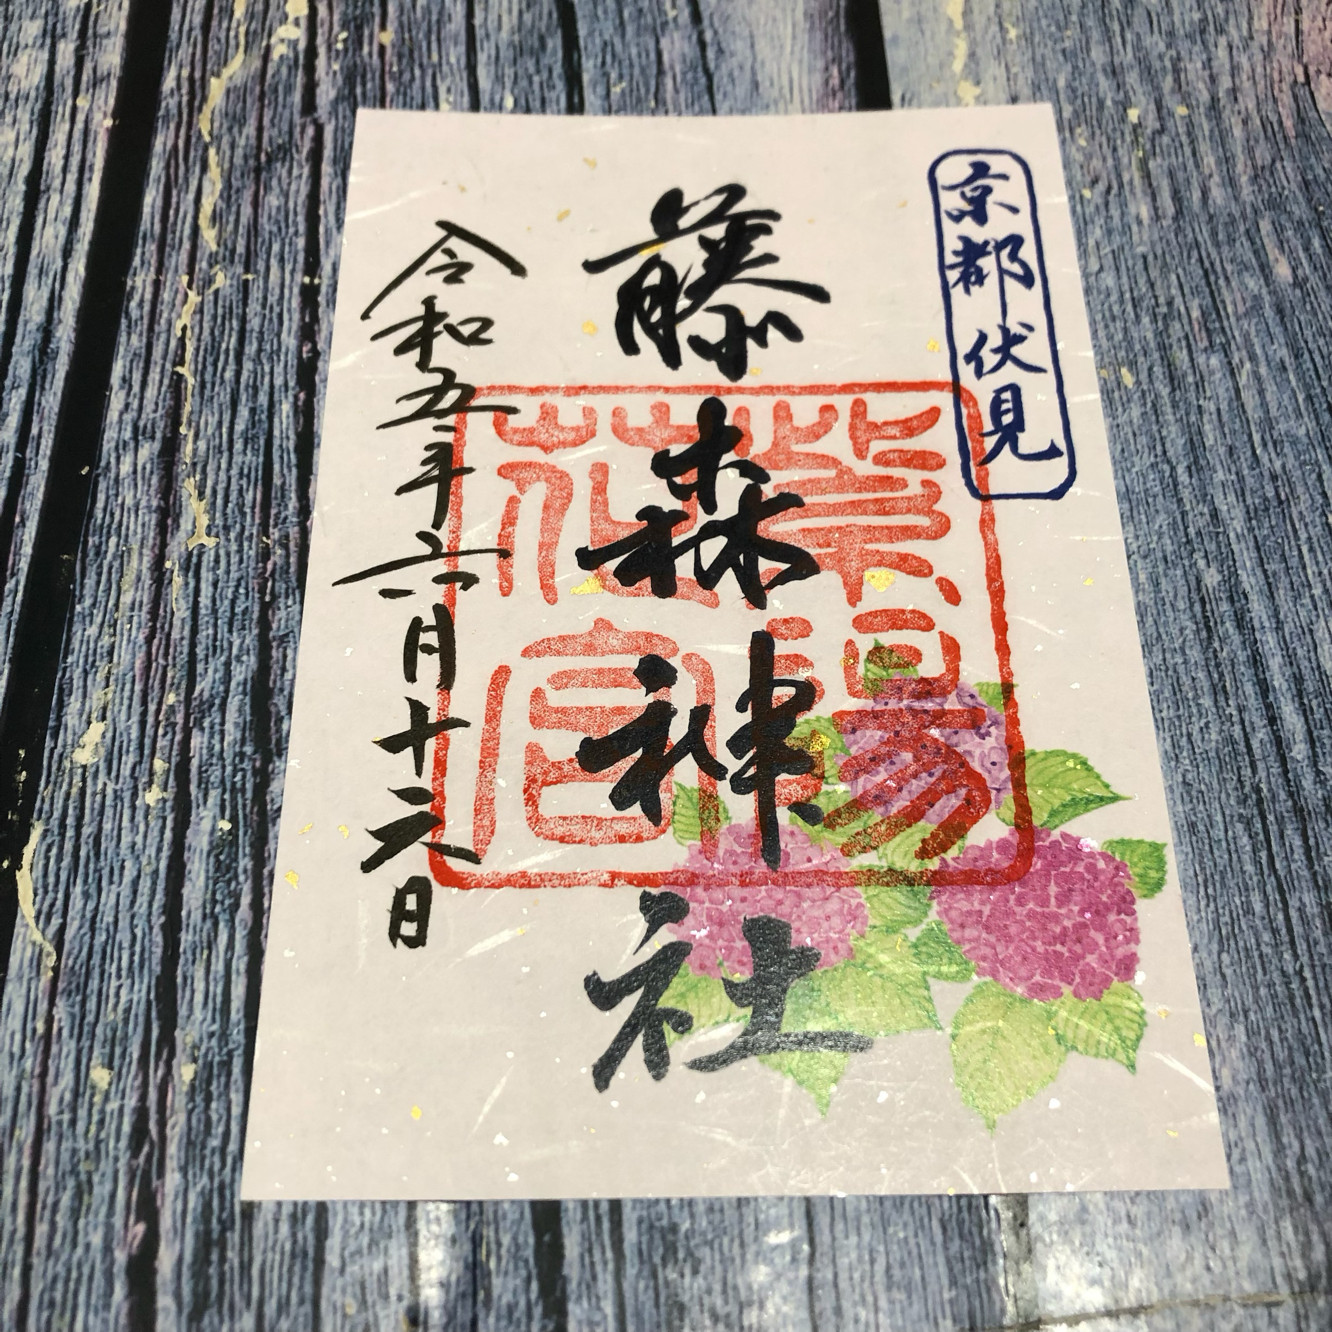 京都伏見
藤森神社
紫陽
花宮
令和五年六月十六日